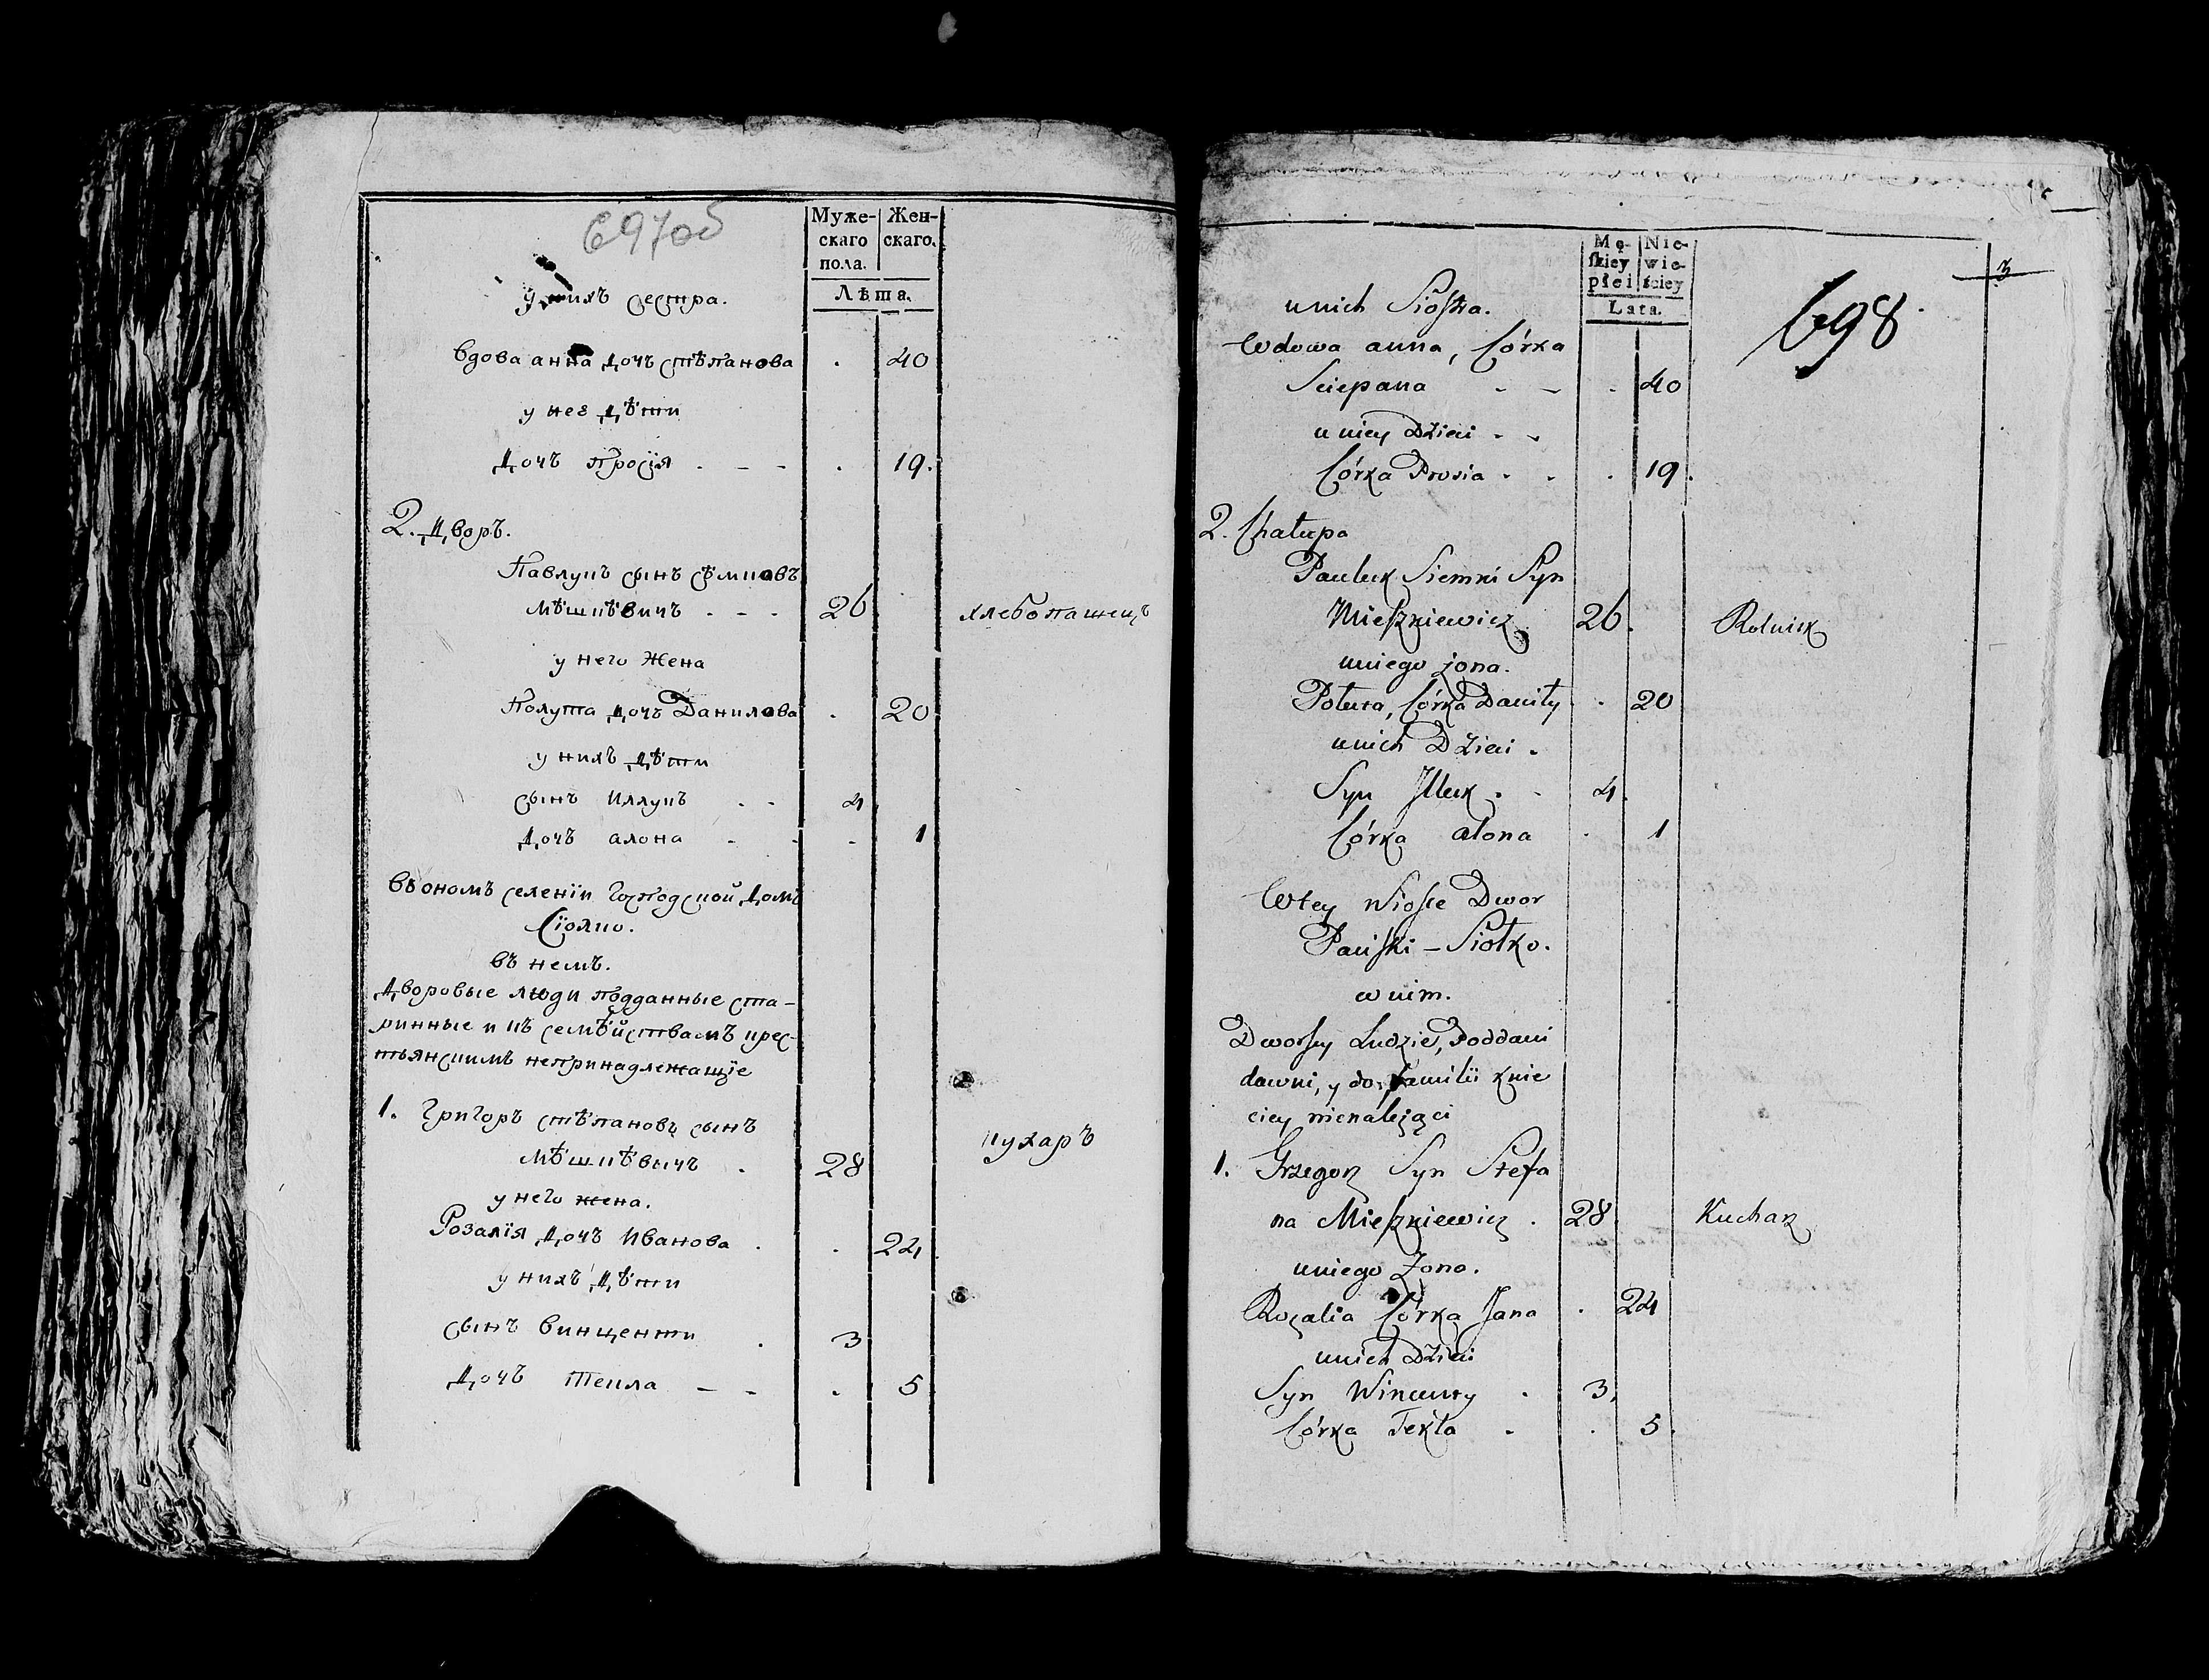 697об
Муже- Жен-
скаго скаго.
пола.
Лѣта.
у нихъ сестра.
вдова анна дочъ стѣпанова . 40
у неѣ дѣти
дочъ просїя . - - . 19.
2. дворъ.
Павлукъ сынъ сѣмковъ
мѣшкѣвичъ . - - 26 хлебопашецъ
у него жена
Полута дочъ Данилова . 20
у нихъ дѣти
сынъ иллукъ . - 4
дочъ алона - - - 1
въ ономъ селенїи Господской домъ
Сїолко.
въ немъ.
дворовые люди подданные ста-
ринные и къ семѣйствамъ крес-
тьянскимъ непринадлежащїе
1. Григоръ стѣпановъ сынъ
мѣшкѣвичъ . 28 кухаръ
у него жена.
Розалїя дочъ иванова . . 24
у нихъ дѣти
сынъ винценти . 3
дочъ текла - - . 5
3
Mę- Nie-
skiey wie-
płci ściey
Lata.
698
unich Siostra.
Wdowa anna, Córka
Sciepana - - . 40
uniey Dzieci . -
Córka Prosia . . . 19.
2. Chałupa
Pauluk Siemki Syn
Mieszkiewicz 26. Rolnik
uniego żona.
Połuta, Córka Daniły . 20
unich Dzieci .
Syn Illuk . - 4.
Córka ałona . 1
Wtey Wiosce Dwor
Pański – Siołko.
w nim.
Dworscy Ludzie, Poddani
dawni, y do familii kmie
ciey nienależąci
1. Grzegorz Syn Stefa
na Mieszkiewicz . 28. Kucharz
uniego Żona.
Rozalia Córka Jana . 24
unich Dzieci
Syn Wincenty . 3,
Córka Tekla . . 5.